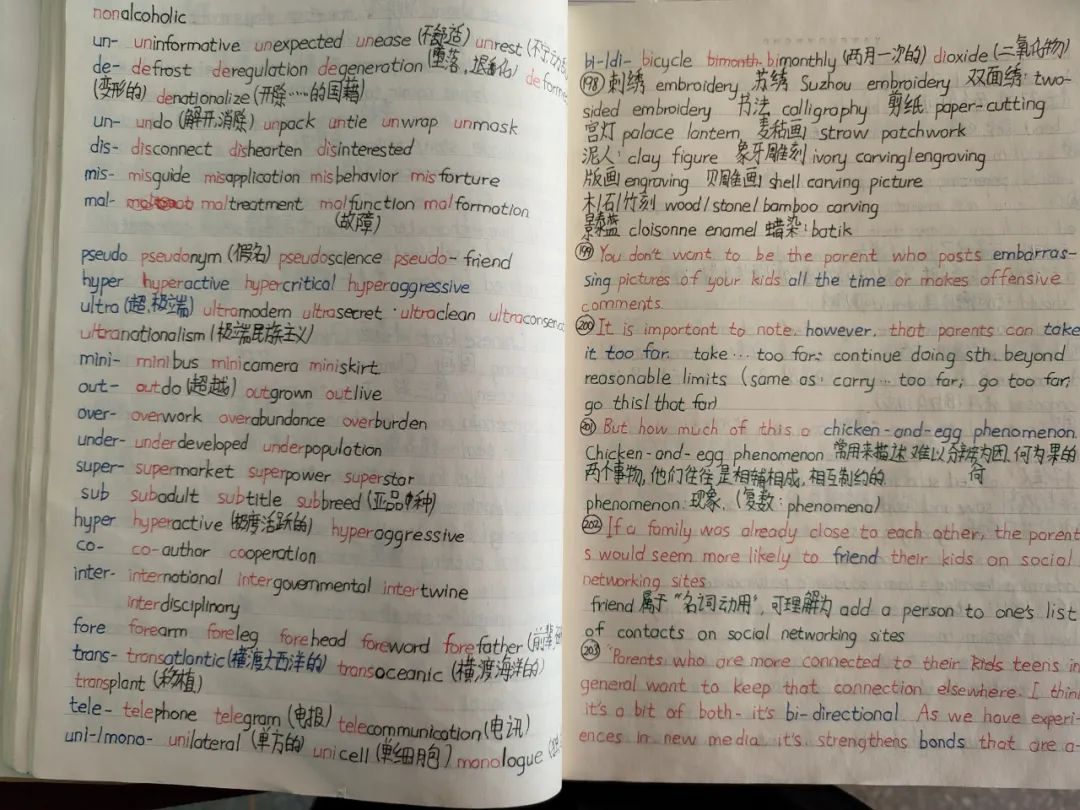 nonalcoholic
un- uninformative unexpected unease (不舒适) unrest
de- defrost deregulation degeneration (堕落, 退化)
(变形的) denationalize (开除……的国籍)
un- undo (解开,消除) unpack untie unwrap unmask
dis- disconnect dishearten disinterested
mis- misguide misapplication misbehavior misforture
mal- maltreatment malfunction malformation
(故障)
pseudo pseudonym (假名) pseudoscience pseudo-friend
hyper hyperactive hypercritical hyperaggressive
ultra (超,极端) ultramodern ultrasecret ultraclean
ultranationalism (极端民族主义)
mini- minibus minicamera miniskirt
out- outdo (超越) outgrown outlive
over- overwork overabundance overburden
under- underdeveloped underpopulation
super- supermarket superpower superstar
sub subadult subtitle subbreed
hyper hyperactive (极度活跃的) hyperaggressive
co- co-author cooperation
inter- international intergovernmental intertwine
interdisciplinary
fore forearm foreleg forehead foreword forefather
trans- transatlantic (横渡大西洋的) transoceanic (横渡海洋的)
transplant (移植)
tele- telephone telegram (电报) telecommunication (电讯)
uni-/mono- unilateral (单方的) unicell (单细胞) monologue
bi-/di- bicycle bimonth- bimonthly (两月一次的) dioxide (二氧化物)
198 刺绣 embroidery 苏绣 Suzhou embroidery 双面绣: two-
sided embroidery 书法 calligraphy 剪纸 paper-cutting
宫灯 palace lantern 麦秸画: straw patchwork
泥人: clay figure 象牙雕刻 ivory carving/engraving
版画 engraving 贝雕画: shell carving picture
木/石/竹刻 wood/stone/bamboo carving
景泰蓝 cloisonne enamel 蜡染: batik
199 You don't want to be the parent who posts embarras-
sing pictures of your kids all the time or makes offensive
comments.
200 It is important to note, however, that parents can take
it too far. take … too far: continue doing sth. beyond
reasonable limits (same as: carry … too far; go too far;
go this/that far)
201 But how much of this a chicken-and-egg phenomenon.
Chicken-and-egg phenomenon 常用来描述难以分辨为因,何为果的
两个事物,他们往往是相辅相成,相互制约的. 何
phenomenon: 现象. (复数: phenomena)
202 If a family was already close to each other, the parent
s would seem more likely to friend their kids on social
networking sites
friend 属于“名词动用”,可理解为 add a person to one's list
of contacts on social networking sites
203 "Parents who are more connected to their kids teens in
general want to keep that connection elsewhere. I think
it's a bit of both- it's bi-directional. As we have experi-
ences in new media, it's strengthens bonds that are a-